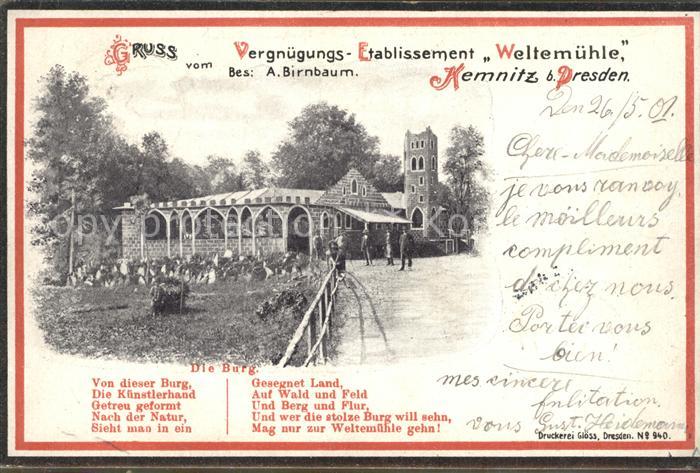 Gruss vom Vergnügungs-Etablissement „Weltemühle,"
Bes: A. Birnbaum. Kemnitz b. Dresden.
Den 26/5.01.
Chere-Mademoiselle
je vous ranvoy
le möilleurs
compliment
chez nous.
Portez vous
bien!
mes cincere
felitation.
vous Gust. Heidemann
Die Burg.
Von dieser Burg,
Die Künstlerhand
Getreu geformt
Nach der Natur,
Sieht man in ein
Gesegnet Land,
Auf Wald und Feld
Und Berg und Flur,
Und wer die stolze Burg will sehn,
Mag nur zur Weltemühle gehn!
Druckerei Glöss, Dresden. No 940.